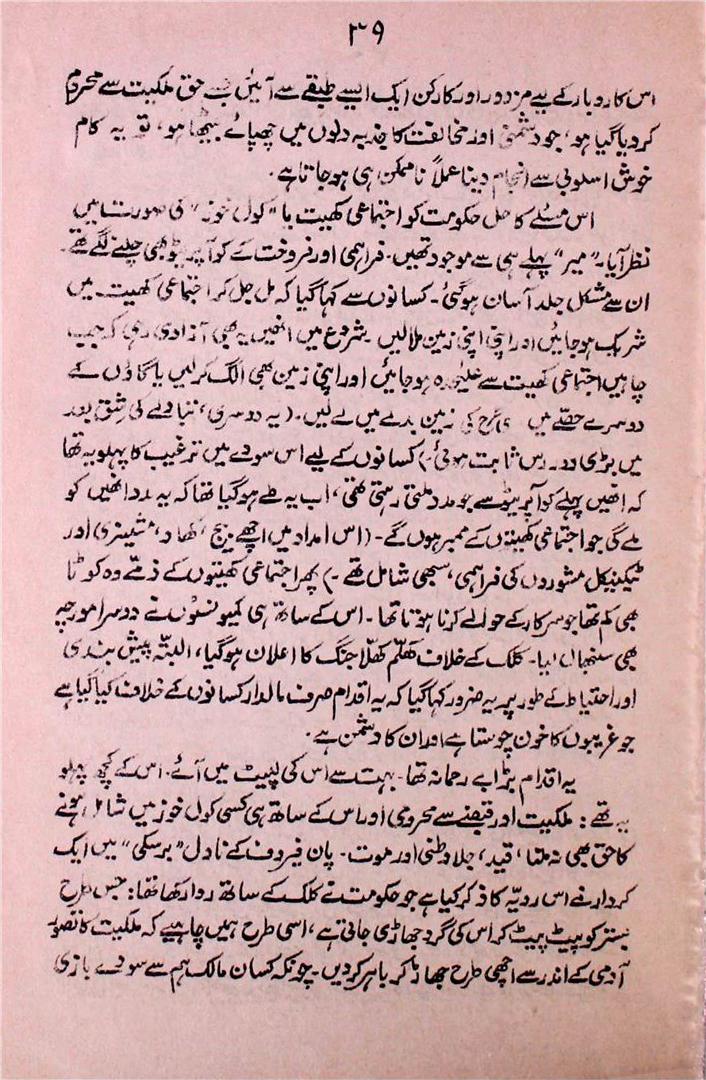 ۳۹
اس کاروبار کے لیے مزدور اور کارکن ایک ایسے طبقے سے آئیں جسے حق ملکیت سے محروم
کر دیا گیا ہو، جو دشمنی اور مخالفت کا جذبہ دلوں میں چھپائے بیٹھا ہو، تو یہ کام
خوش اسلوبی سے انجام دینا عملاً ناممکن ہی ہو جاتا ہے۔
اس مسئلے کا حل حکومت کو اجتماعی کھیت یا "کول خوز" کی صورت میں
نظر آیا۔ "میر" پہلے ہی سے موجود تھیں۔ فراہمی اور فروخت کے کوآپریٹو بھی چلنے لگے تھے۔
ان سے مشکل جلد آسان ہو گئی۔ کسانوں سے کہا گیا کہ مل جل کر اجتماعی کھیت میں
شریک ہو جائیں اور اپنی اپنی زمین ملا لیں۔ شروع میں انھیں یہ بھی آزادی رہی کہ جب
چاہیں اجتماعی کھیت سے علیحدہ ہو جائیں اور اپنی زمین بھی الگ کر لیں یا گاؤں کے
دوسرے حصّے میں اسی طرح کی زمین بدلے میں لے لیں۔ (یہ دوسری، تبادلے کی شق بعد
میں بڑی دور رس ثابت ہوئی۔) کسانوں کے لیے اس سودے میں ترغیب کا پہلو یہ تھا
کہ انھیں پہلے کوآپریٹو سے جو مدد ملتی رہتی تھی، اب یہ طے ہو گیا تھا کہ یہ مدد انھیں کو
ملے گی جو اجتماعی کھیتوں کے ممبر ہوں گے۔ (اس امداد میں اچھے بیج، کھاد، مشینری اور
ٹیکنیکل مشوروں کی فراہمی، سبھی شامل تھے۔) پھر اجتماعی کھیتوں کے ذمّے وہ کوٹا
بھی کم تھا جو سرکار کے حوالے کرنا ہوتا تھا۔ اس کے ساتھ ہی کمیونسٹوں نے دوسرا مورچہ
بھی سنبھال لیا۔ کلک کے خلاف کھلّم کھلّا جنگ کا اعلان ہو گیا، البتّہ پیش بندی
اور احتیاط کے طور پر یہ ضرور کہا گیا کہ یہ اقدام صرف مالدار کسانوں کے خلاف کیا گیا ہے
جو غریبوں کا خون چوستا ہے اور ان کا دشمن ہے۔
یہ اقدام بڑا بے رحمانہ تھا۔ بہت سے اس کی لپیٹ میں آئے۔ اس کے کچھ پہلو
یہ تھے: ملکیت اور قبضے سے محرومی اور اس کے ساتھ ہی کسی کول خوز میں شامل ہونے
کا حق بھی نہ ملنا، قید، جلاوطنی اور موت۔ پان فیروف کے ناول "برسکی" میں ایک
کردار نے اس رویّہ کا ذکر کیا ہے جو حکومت نے کلک کے ساتھ روا رکھا تھا: جس طرح
بستر کو پیٹ پیٹ کر اس کی گرد جھاڑی جاتی ہے، اسی طرح ہمیں چاہیے کہ ملکیت کا تصور
آدمی کے اندر سے اچھی طرح جھاڑ کر باہر کر دیں۔ چونکہ کسان مالک ہم سے سودے بازی